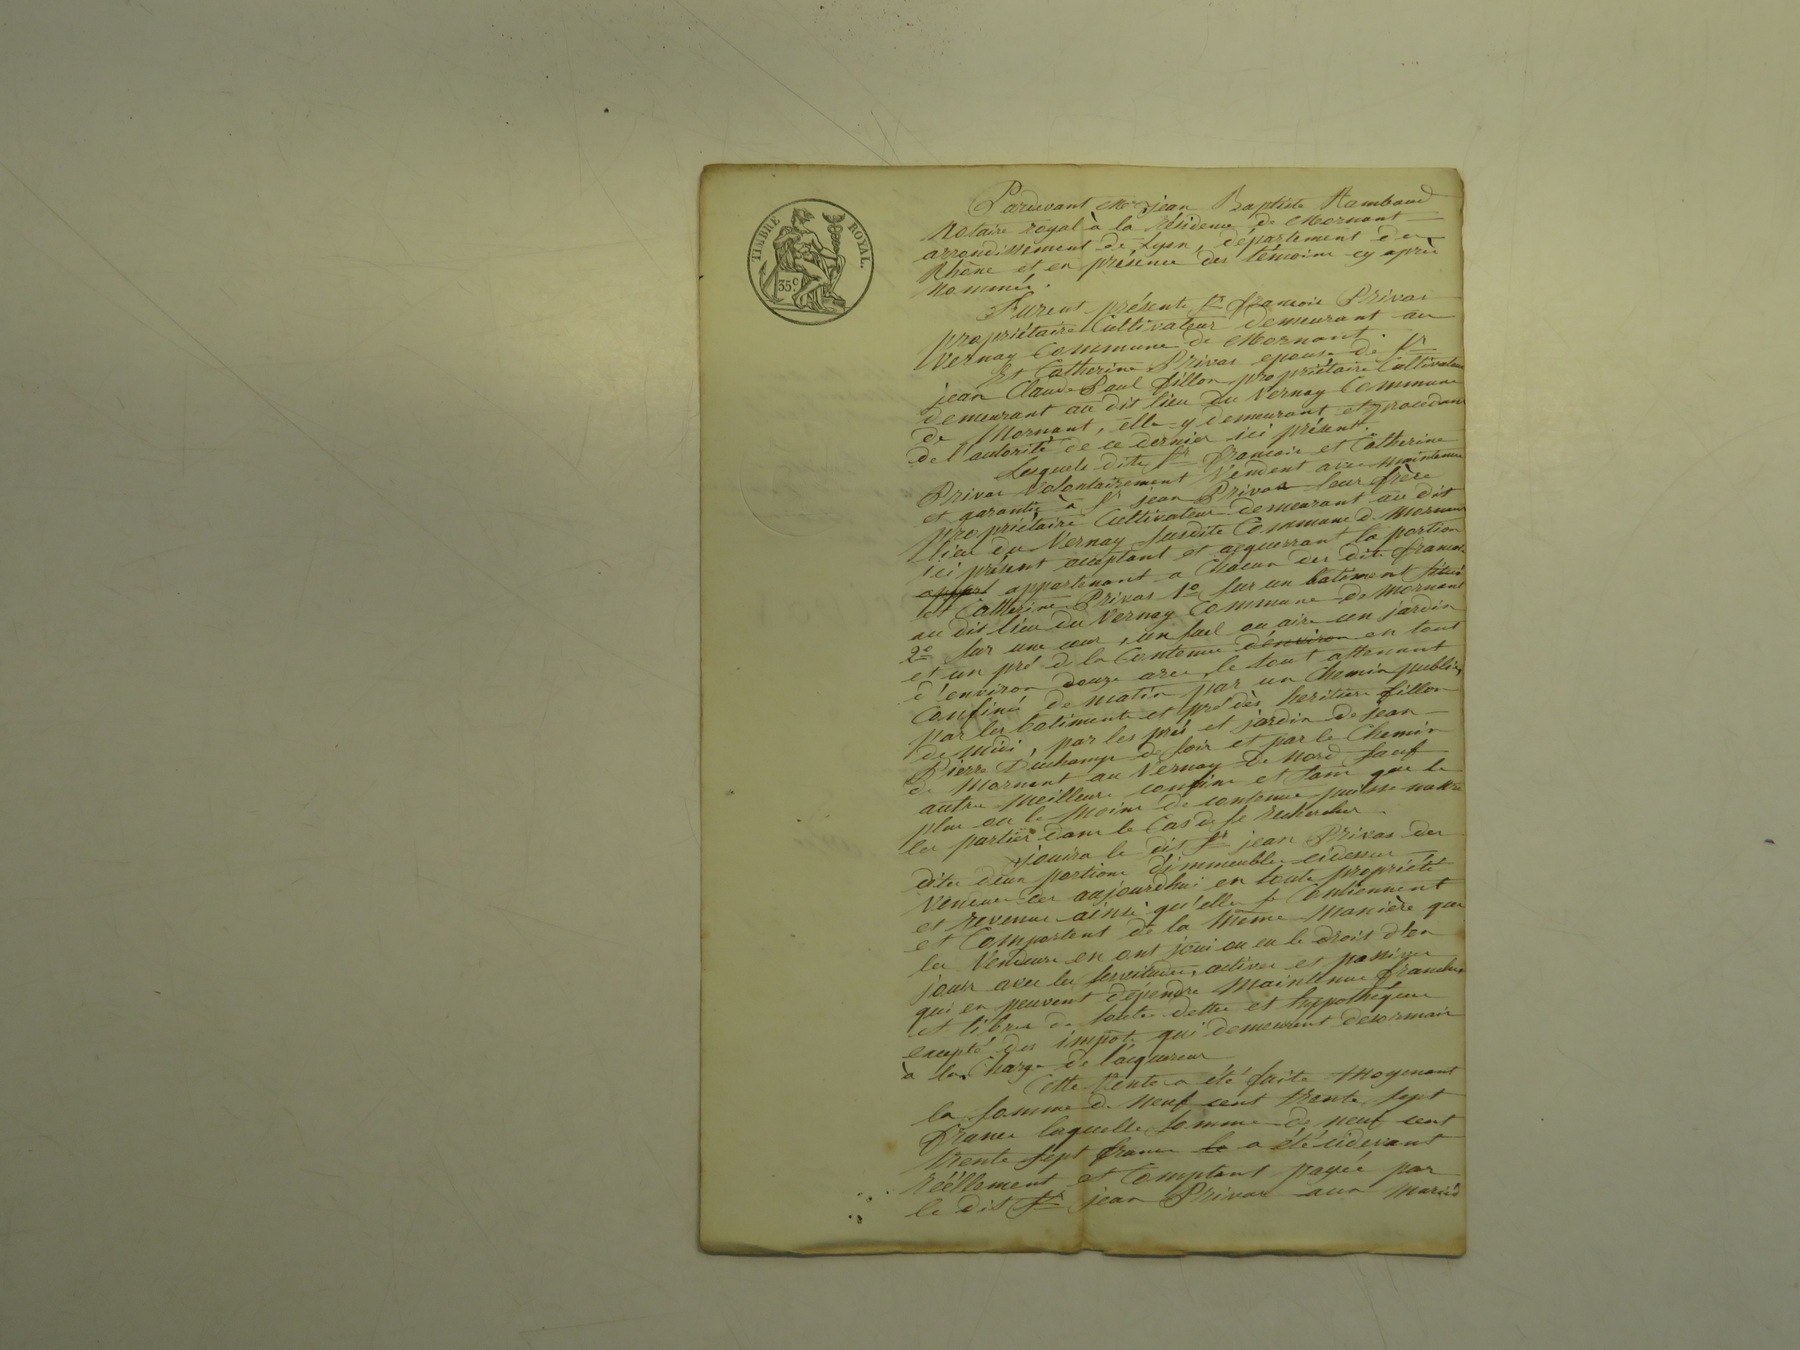 TIMBRE ROYAL.
35c
Pardevant Me jean Baptiste Rambaud
Notaire royal à la résidence de Mornant
arrondissement de Lyon, département du
Rhône et en présence des témoins cy après
nommés.
Furent présents sr françois Privas
propriétaire Cultivateur demeurant au
Vernay Commune de Mornant.
Et Catherine Privas epouse de sr
jean Claude Paul fillon propriétaire Cultivateur
demeurant au dit lieu du Vernay Commune
de Mornant, elle y demeurant et procedant
de l'autorité de ce dernier ici présent.
Lesquels dits sr françois et Catherine
Privas Volontairement Vendent avec maintenue
et garantie à sr jean Privas leur frère
propriétaire Cultivateur demeurant au dit
lieu du Vernay susdite Commune de Mornant
ici présent acceptant et acquerrant la portion
appart appartenant a Chacun des dits françois
et Catherine Privas 1o sur un batiment situé
au dit lieu du Vernay Commune de Mornant
2o sur une cour, un suel ou aire un jardin
et un pré de la Contenue d'environ en tout
d'environ douze ares, le tout attenant
Confinés de matin par un Chemin public,
par les batiments et pré des heritiers fillon
de midi, par les prés et jardin de jean
Pierre Duchamp de soir et par le Chemin
de Mornant au Vernay de Nord sauf
autres meilleurs confins et sans que le
plus ou le moins de contenue puisse mettre
les parties dans le Cas de se rechercher
jouira le dit sr jean Privas des
dites deux portions d'immeubles cidessus
Vendues des aujourdhui en toute propriété
et revenus ainsi qu'elles se Contiennent
et Comportent de la même manière que
les Vendeurs en ont joui ou eu le droit d'en
jouir avec les servitudes, actives et passives
qui en peuvent dépendre Maintenues franches
et libres de toutes dettes et hypothéques
excepté des impots qui demeurent desormais
à la Charge de l'acquereur
Cette Vente a été faite Moyenant
la somme de Neuf cent trente sept
francs laquelle somme de neuf cent
trente sept francs le a été cidevant
réellement et Comptant payée par
le dit sr jean Privas aux mariés